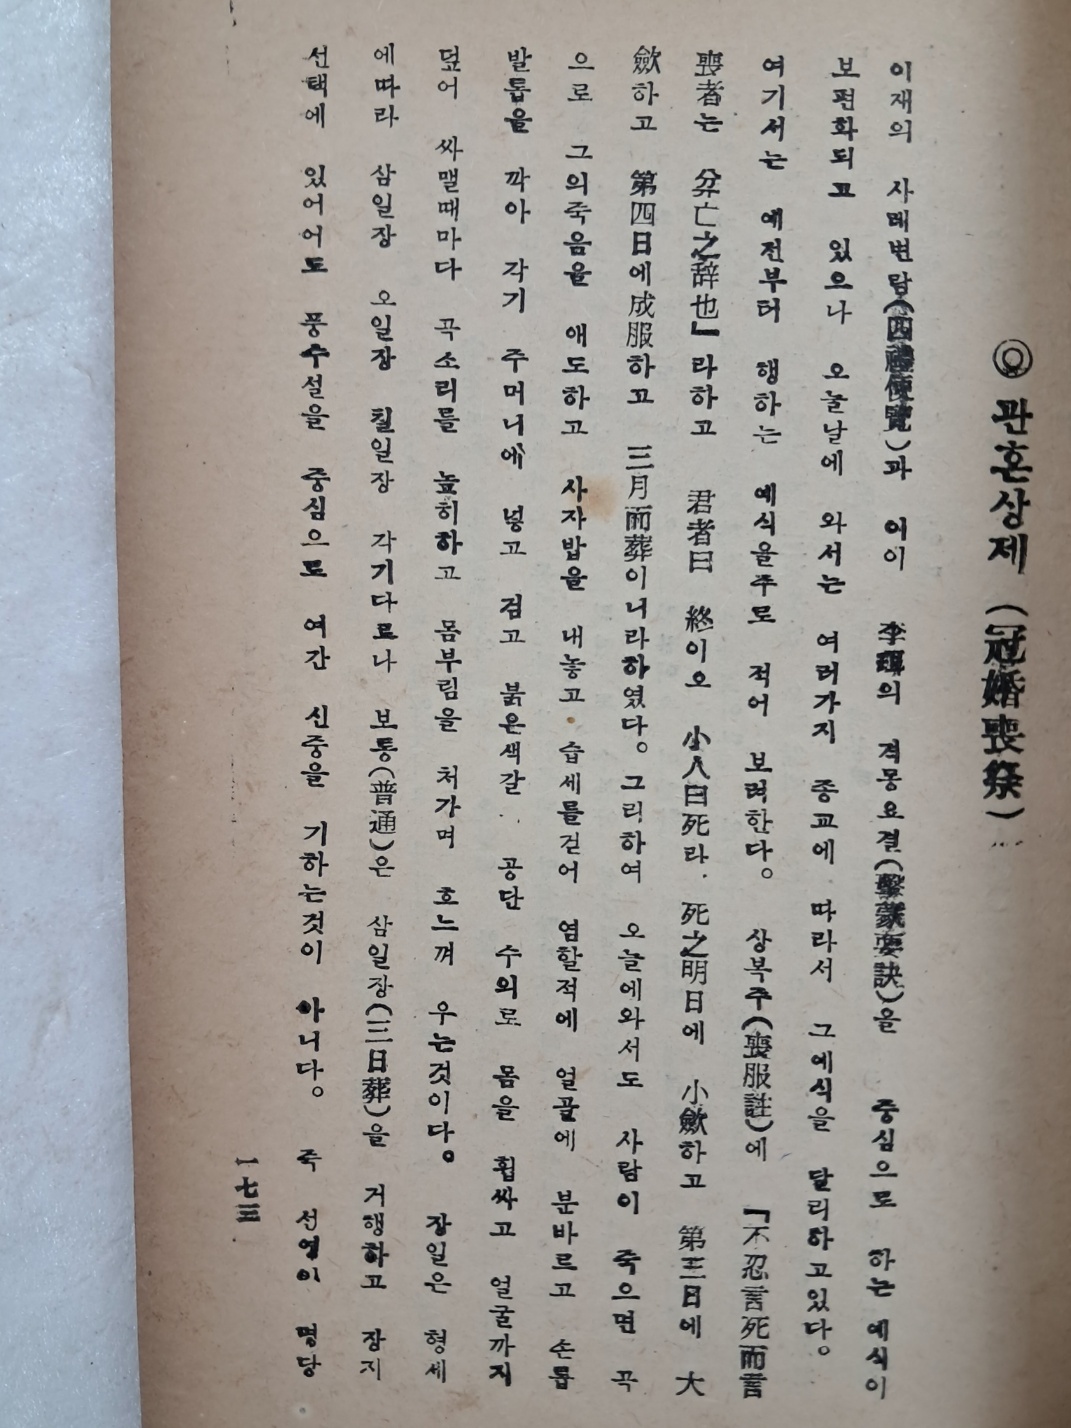 ◎ 관혼상제 (冠婚喪祭)
이재의 사례변람(四禮便覽)과 이이 李珥의 격몽요결(擊蒙要訣)을 중심으로 하는 예식이
보편화되고 있으나 오늘날에 와서는 여러가지 종교에 따라서 그예식을 달리하고있다。
여기서는 예전부터 행하는 예식을주로 적어 보려한다。 상복주(喪服註)에 『不忍言死而言
喪者는 弃亡之辞也』라하고 君者曰 終이오 小人曰死라. 死之明日에 小歛하고 第三日에 大
歛하고 第四日에成服하고 三月而葬이니라하였다。그리하여 오늘에와서도 사람이 죽으면 곡
으로 그의죽음을 애도하고 사자밥을 내놓고 습세를걷어 염할적에 얼골에 분바르고 손톱
발톱을 깍아 각기 주머니에 넣고 검고 붉은색갈 공단 수의로 몸을 휩싸고 얼굴까지
덮어 싸맬때마다 곡소리를 높히하고 몸부림을 처가며 흐느껴 우는것이다。 장일은 형세
에따라 삼일장 오일장 칠일장 각기다르나 보통(普通)은 삼일장(三日葬)을 거행하고 장지
선택에 있어어도 풍수설을 중심으로 여간 신중을 기하는것이 아니다。 죽 선영이 명당
一七三